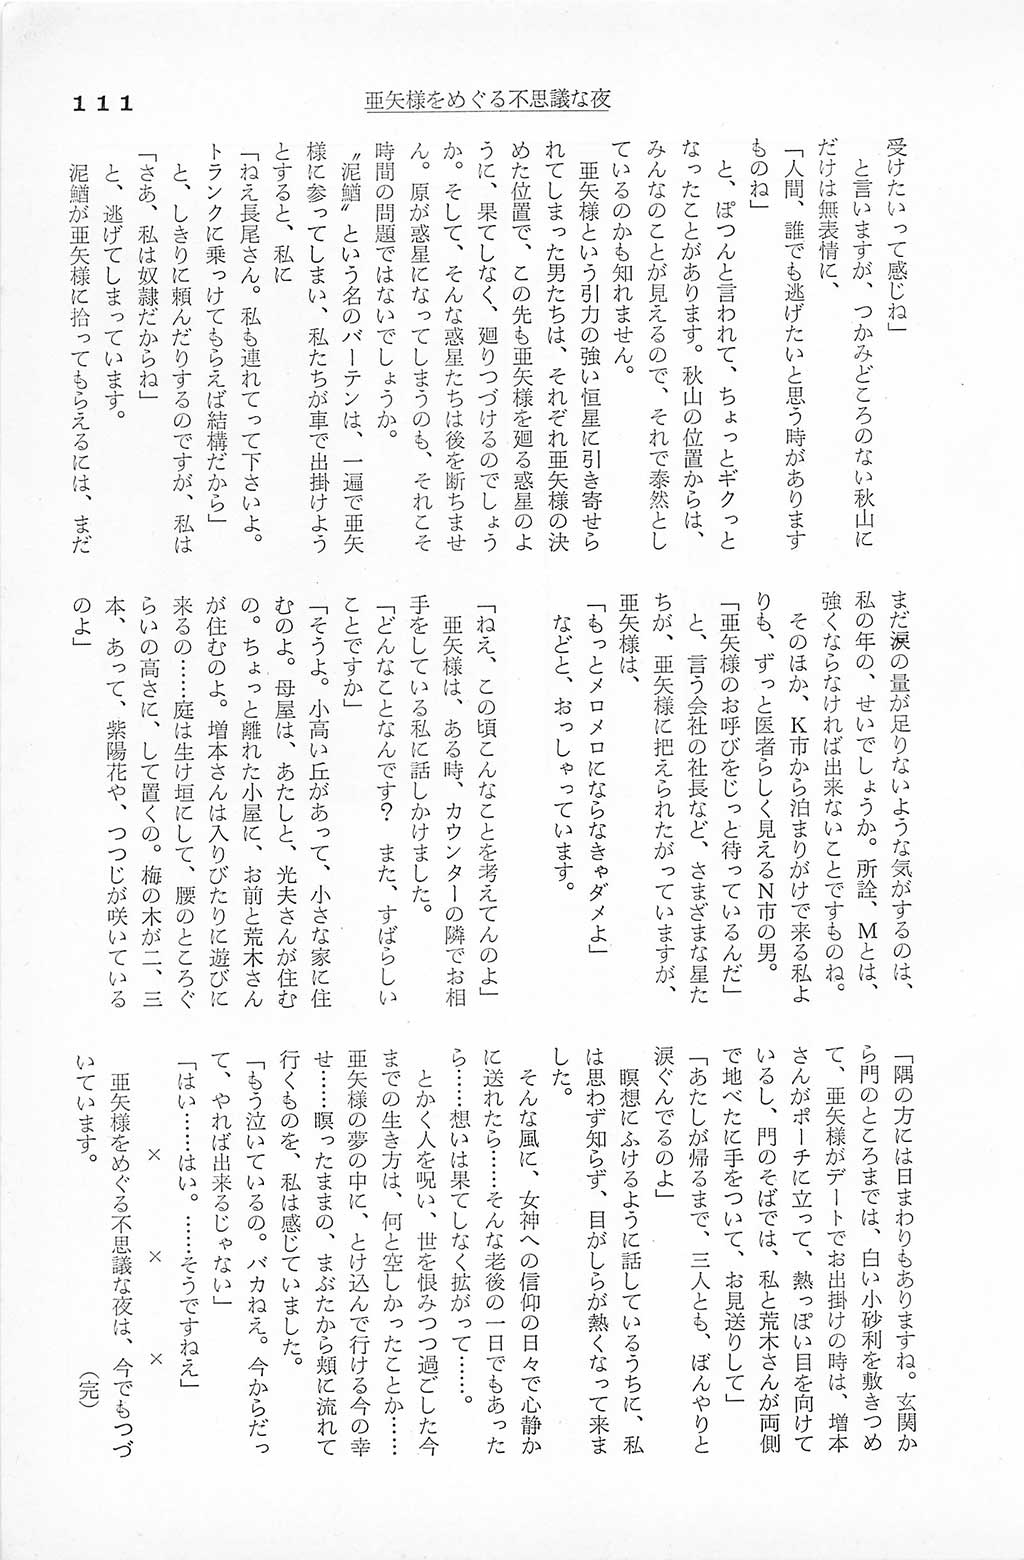 111
亜矢様をめぐる不思議な夜
受けたいって感じね」
と言いますが、つかみどころのない秋山に
だけは無表情に、
「人間、誰でも逃げたいと思う時があります
ものね」
と、ぽつんと言われて、ちょっとギクっと
なったことがあります。秋山の位置からは、
みんなのことが見えるので、それで泰然とし
ているのかも知れません。
亜矢様という引力の強い恒星に引き寄せら
れてしまった男たちは、それぞれ亜矢様の決
めた位置で、この先も亜矢様を廻る惑星のよ
うに、果てしなく、廻りつづけるのでしょう
か。そして、そんな惑星たちは後を断ちませ
ん。原が惑星になってしまうのも、それこそ
時間の問題ではないでしょうか。
〝泥鰌〟という名のバーテンは、一遍で亜矢
様に参ってしまい、私たちが車で出掛けよう
とすると、私に
「ねえ長尾さん。私も連れてって下さいよ。
トランクに乗っけてもらえば結構だから」
と、しきりに頼んだりするのですが、私は
「さあ、私は奴隷だからね」
と、逃げてしまっています。
泥鰌が亜矢様に拾ってもらえるには、まだ
まだ涙の量が足りないような気がするのは、
私の年の、せいでしょうか。所詮、Mとは、
強くならなければ出来ないことですものね。
そのほか、K市から泊まりがけで来る私よ
りも、ずっと医者らしく見えるN市の男。
「亜矢様のお呼びをじっと待っているんだ」
と、言う会社の社長など、さまざまな星た
ちが、亜矢様に把えられたがっていますが、
亜矢様は、
「もっとメロメロにならなきゃダメよ」
などと、おっしゃっています。
「ねえ、この頃こんなことを考えてんのよ」
亜矢様は、ある時、カウンターの隣でお相
手をしている私に話しかけました。
「どんなことなんです?　また、すばらしい
ことですか」
「そうよ。小高い丘があって、小さな家に住
むのよ。母屋は、あたしと、光夫さんが住む
の。ちょっと離れた小屋に、お前と荒木さん
が住むのよ。増本さんは入りびたりに遊びに
来るの……庭は生け垣にして、腰のところぐ
らいの高さに、して置くの。梅の木が二、三
本、あって、紫陽花や、つつじが咲いている
のよ」
「隅の方には日まわりもありますね。玄関か
ら門のところまでは、白い小砂利を敷きつめ
て、亜矢様がデートでお出掛けの時は、増本
さんがポーチに立って、熱っぽい目を向けて
いるし、門のそばでは、私と荒木さんが両側
で地べたに手をついて、お見送りして」
「あたしが帰るまで、三人とも、ぼんやりと
涙ぐんでるのよ」
瞑想にふけるように話しているうちに、私
は思わず知らず、目がしらが熱くなって来ま
した。
そんな風に、女神への信仰の日々で心静か
に送れたら……そんな老後の一日でもあった
ら……想いは果てしなく拡がって……。
とかく人を呪い、世を恨みつつ過ごした今
までの生き方は、何と空しかったことか……
亜矢様の夢の中に、とけ込んで行ける今の幸
せ……瞑ったままの、まぶたから頬に流れて
行くものを、私は感じていました。
「もう泣いているの。バカねえ。今からだっ
て、やれば出来るじゃない」
「はい……はい。……そうですねえ」
×　×　×
亜矢様をめぐる不思議な夜は、今でもつづ
いています。
（完）